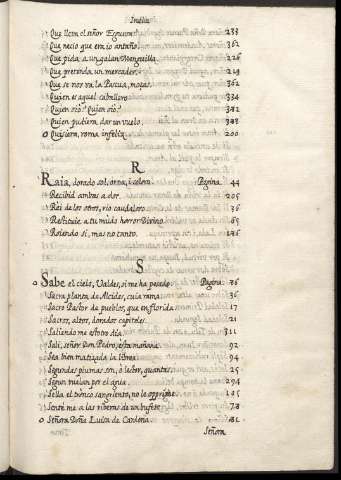 Indice
Que llem el señor Esgueua? 233
Que necio que era io antaño. 362
Que pida a un galan Menguilla 226
Que pretenda un mercader. 219
Que se nos va la Pascua, moças. 362
Quien es aquel caballero 334
Quien oió? Quien oió? 382
Quien pudiera dar un vuelo
o Quisiera, roma infeliz. 200
R
Raia, dorado sol, orna, i colora Pagina. 44
Recibid ambas a dos. 205
Rei de los otros, rio caudaloso. 36
Restituie a tu mudo horror Divino. 65
Roiendo si, mas no tanto. 146
S
o Sabe el cielo, Valdes, si me ha pesado Pagina 76
Sacra planta de Alcides, cuia rama 36
Sacro Pastor de pueblos, que en florida
Sacros, altos, dorados capiteles. 21
Saliendo me estotro dia. 311
Sali, señor Don Pedro, esta mañana. 92
Sea bien matizada la librea 94
Segundas plumas son, o lector, quantas 25
Segun vuelan por el agua 294
Sella el tronco sangriento, no le opprime 105
Senté me a las riberas de un bufete 78
o Señora Doña Luisa de Cardona 81
Señora